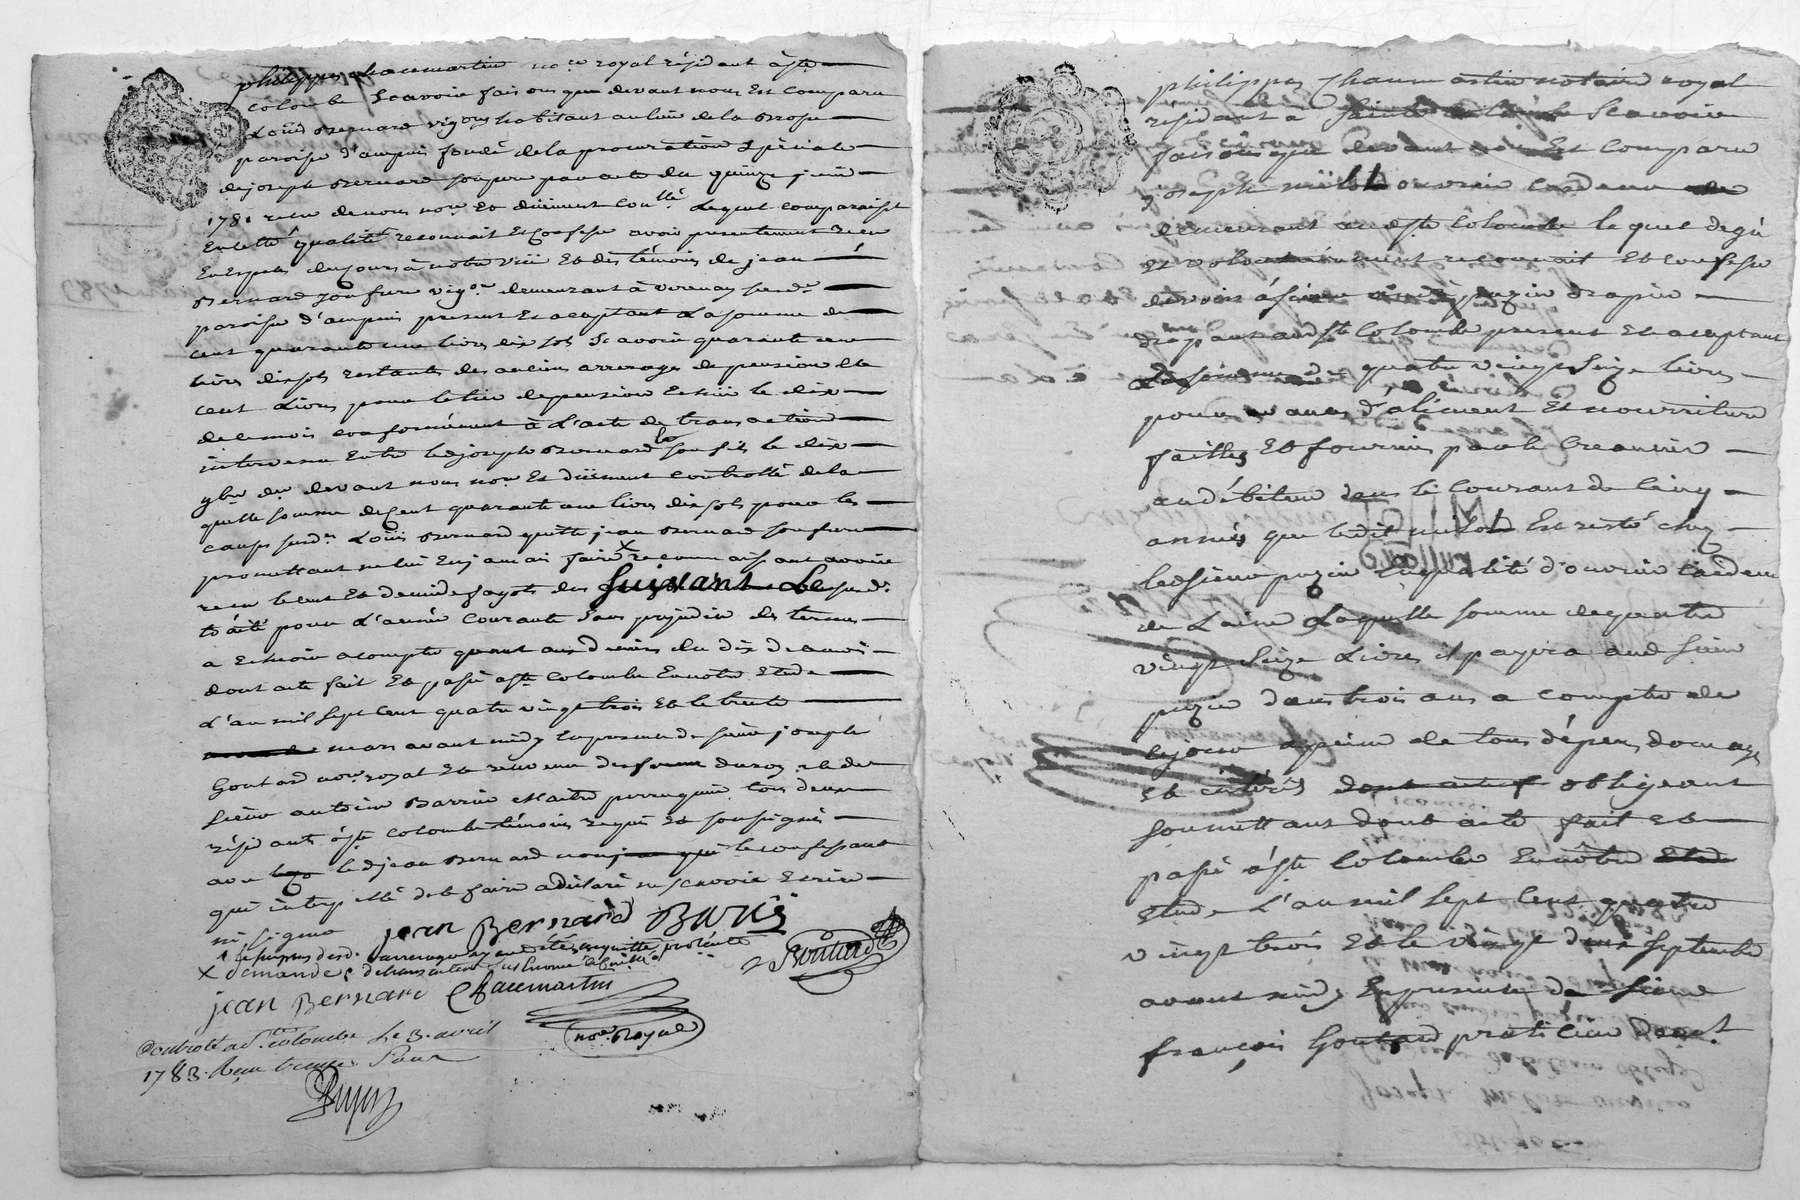 philippes Chaumartin no.re royal résidant à s.te
colombe Scavoir faisons que devant nous Est Comparu
Louis Bernard vigron habitant au lieu de la Brosse
paroisse d'ampuis fondé de la procuration Spéciale
de joseph Bernard son pere par acte du quinze juin
1781 recu de nous no.re Et duement Con.llé Lequel Comparaissant
En cette qualité reconnait Et Confesse avoir presentement Recu
En Espèces du jours à notre vüe Et des témoins de jean
Bernard son frere vig.on demeurant à verenay susd.e
paroisse d'ampuis present Et aceptant La somme de
cent quarante une livres dix sols Scavoir quarante une
livres dix sols restants des anciens arrerages de pension Et
Cent Livres pour le de pension Echue le dix
de ce mois conformément à L'acte de transaction
intervenu Entre led joseph Bernard son fils le dix
9bre d.r devant nous no.re Et duement controllé de la
quelle somme de Cent quarante une livres dix sols pour les
causes susd.s Louis Bernard quitte jean Bernard son frere
promettant ne lui En jamais faire × reconnaissant avoir
recu le cent Et demi de fagots des suivant Le susd.
traité pour L'année Courante Sans prejudice des termes
a Echeoir a compte quant aux denrées du dix de ce mois
dont acte fait Et passé à s.te Colombe En notre Etude
L'an mil sept Cent quatre vingt trois Et le trente
mars avant midy En presence de sieur joseph
Goutard no.re royal Et receveur des du roy Et de
sieur antoine Barrin Maitre perruquier tous deux
résidants à s.te Colombe témoins requis Et soussignés
avec led jean Bernard non le confessant
qui interpellé de le faire a déclaré ne scavoir Ecrire
ni signer jean Bernard Barin
× demandes
Goutard
jean Bernard Chaumartin
no.re Royal
Controlé a S.te colombe Le 3. avril
1783. Reçu trente Sous
philippes Chaumartin notaire royal
résidant à Sainte Colombe Scavoir
faisons que devant nous Est Comparu
joseph milot ouvrier cardeur de
demeurant aud s.te Colombe lequel de gré
Et volontairement reconnait Et confesse
devoir à sieur puzin drapier
drapant aud s.te Colombe present Et aceptant
La somme de quatre vingt Seize livres
pour d'aliment Et nourriture
faittes Et fournies par le Creancier
au débiteur dans le Courant de
années que ledit milot Est resté chez
led sieur puzin En qualité d'ouvrier cardeur
de Laine Laquelle somme de quatre
vingt Seize Livres il payera aud sieur
puzin dans trois ans a compter de
ce jour a peine de tous dépens domages
Et intérêts dont acte f obligeant
soumettant dont acte fait Et
passé à s.te Colombe En notre Etude
Etude L'an mil Sept Cent quatre
vingt trois Et le vingt deux Septembre
avant midy En presence de sieur
françois Goutard praticien